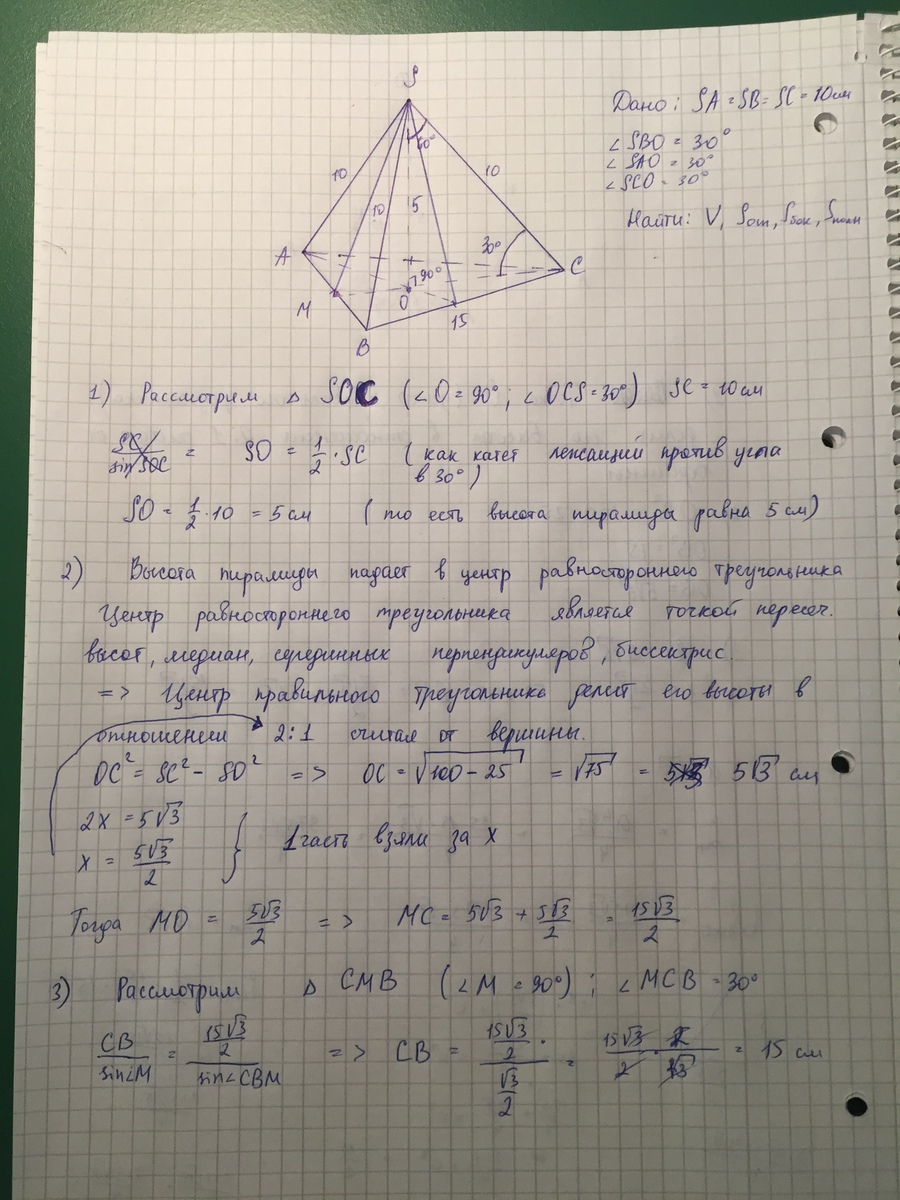 S
60°
10
10
5
10
30°
A
C
90°
O
M
15
B
Дано: SA = SB = SC = 10см
∠SBO = 30°
∠SAO = 30°
∠SCO = 30°
Найти: V, Sосн, Sбок, Sполн
1) Рассмотрим △ SOC (∠O = 90°; ∠OCS = 30°) SC = 10см
SO = 1/2 · SC (как катет лежащий против угла
в 30°)
SO = 1/2 · 10 = 5 см (то есть высота пирамиды равна 5 см)
2) Высота пирамиды падает в центр равностороннего треугольника
Центр равностороннего треугольника является точкой пересеч.
высот, медиан, серединных перпендикуляров, биссектрис.
=> Центр правильного треугольника делит его высоты в
отношении 2:1 считая от вершины.
OC² = SC² - SO² => OC = √(100 - 25) = √75 = 5√3 см
2x = 5√3
x = 5√3/2 } 1 часть взяли за x
Тогда MO = 5√3/2 => MC = 5√3 + 5√3/2 = 15√3/2
3) Рассмотрим △ CMB (∠M = 90°); ∠MCB = 30°
CB/sin∠M = (15√3/2)/sin∠CBM => CB = (15√3/2)·/(√3/2) = 15√3/2 · 2/√3 = 15 см